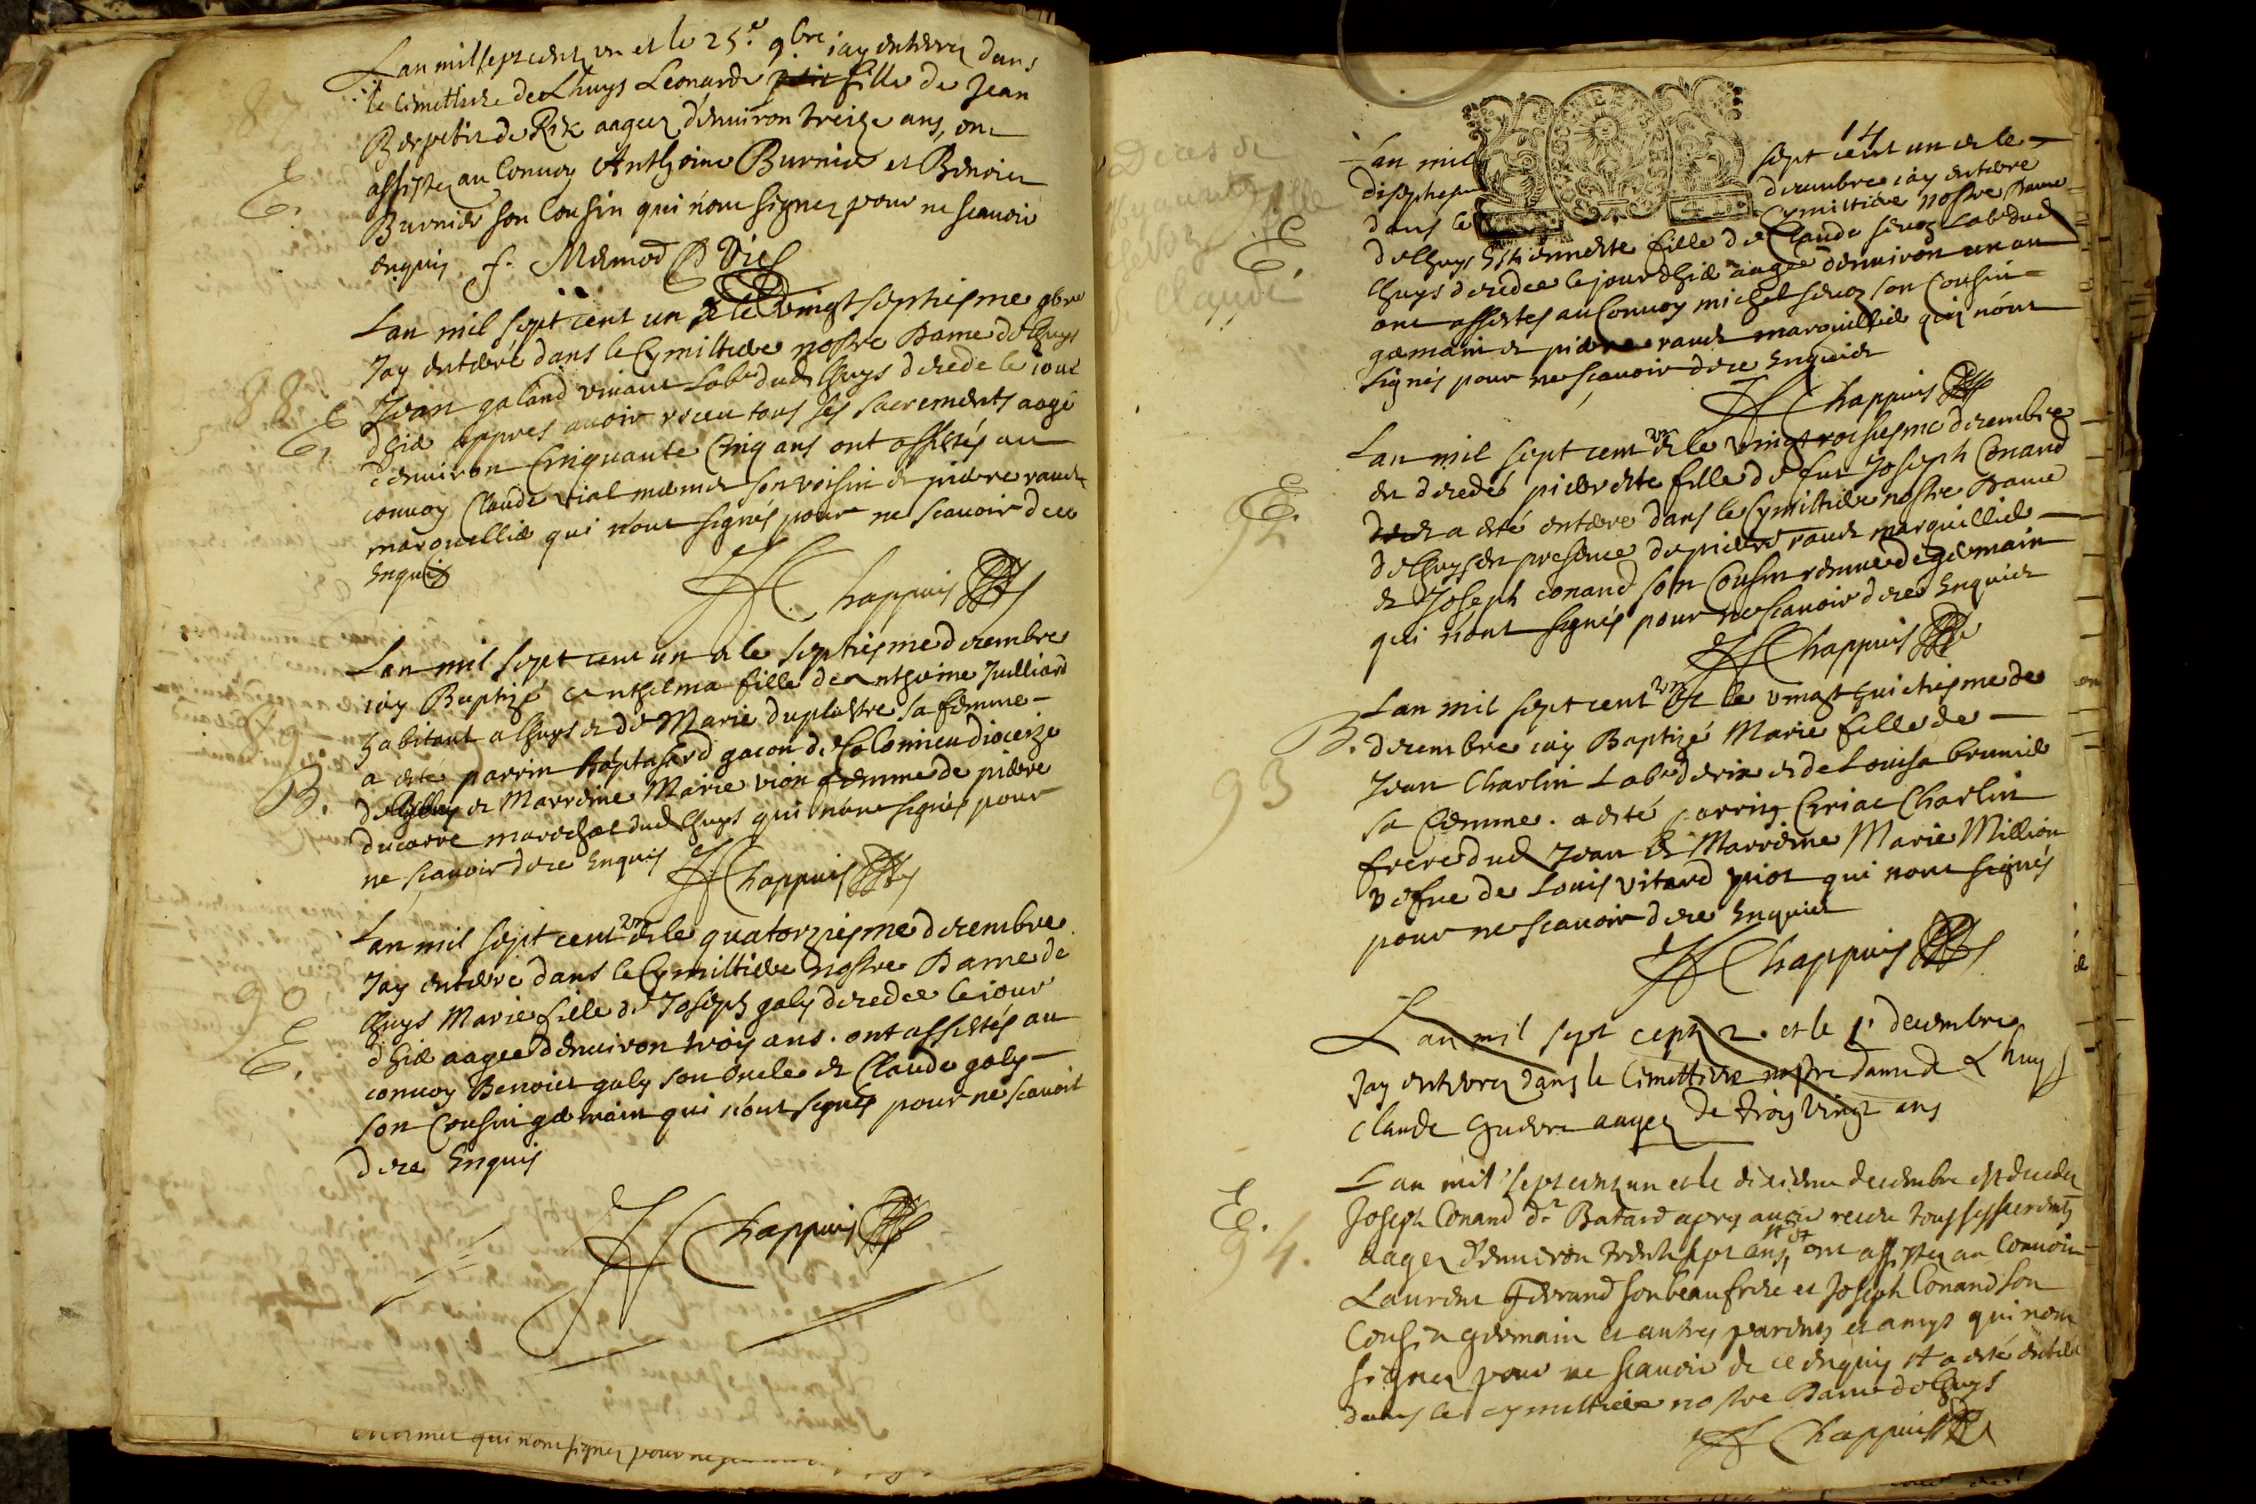 Lan mil sept cent un et le 25e 9bre iay enterrez dans
le Cimettiere de Lhuys Leonarde fille de Jean
Berpetit de Rix aagee denuiron treize ans, ont
assistez au Conuoy Anthoine Burnier et Benoict
Burnier son Cousin qui nont signez pour ne scauoir
enquis f. Mermod Vic
Lan mil sept cent un et le vingt septiesme 9bre
Jay enterré dans le Cymiltiere nostre Dame de lhuys
Jean galand viuant Labr dud lhuys decede le iour
dhier appres auoir receu tous ses sacrements aagé
denuiron Cinquante Cinq ans ont assistés au
conuoy Claude vial son voisin et pierre
marguillier qui nont signés pour ne scauoir de ce
Enquis
Chappuis
E.
88
E.
Lan mil sept cent un et le septiesme decembre
iay Baptizé anthelma fille de anthoine Julliard
habitant a lhuys et de Marie duplastre sa femme
a esté parrin gacon de Colomieu diocezze
de Belley et Marreine Marie vion femme de pierre
ducarre mareschal dud lhuys qui nont signés pour
ne scauoir de ce Enquis
Chappuis
89
B.
Lan mil sept cent vn et le quatorziesme decembre
Jay enterré dans le Cymiltiere nostre Dame de
lhuys Marie fille de Joseph galy decedee le iour
dhier aagee denuiron troys ans. ont assistés au
conuoy Benoict galy son oncle et Claude galy
son Cousin germain qui nont signés pour ne scauoir
de ce Enquis
Chappuis
90
E.
qui nont signez pour ne
14
Lan mil sept cent un et le
diseptiesme decembre iay enterre
dans le Cymiltiere nostre Dame
de lhuys Estiennette fille de Claude Labr dud
lhuys decedee le jour dhier aagee denuiron un an
ont assistes au Conuoy michel son Cousin
germain et pierre marguillier qui nont
signés pour ne scauoir de ce Enquis
Chappuis
E.
Lan mil sept cent vn et le vingt troisiesme decembre
est decedé pierrette fille de fut Joseph Conand
et a esté enterre dans le Cymiltiere nostre Dame
de lhuys en presence de pierre marguillier
et Joseph conand son Cousin remue de germain
qui nont signés pour ne scauoir de ce Enquis
Chappuis
92
E.
Lan mil sept cent vn et le vingt huictiesme de
decembre iay Baptizé Marie fille de
Jean Charlin Labr de rix et de Louisa brunier
sa femme. a esté parring Ciriac Charlin
frere dud Jean et Marreine Marie Million
vefue de Louis vitard piot qui nont signés
pour ne scauoir de ce Enquis
Chappuis
B.
93
Lan mil sept cent 2 et le 1r decembre
Jay enterrez dans le Cimettiere nostre dame de Lhuys
Claude aagez de troy vingt ans
Lan mil sept cent un et le dixieme decembre est decedez
Joseph Conand dt Batard apres auoir receu tous ses sacrements
aagez denuiron trente sept ans, et ont assistez au Conuoir
Laurent Ferrand son beaufrere et Joseph Conand son
Cousin germain et autres parents et amys qui nont
signez pour ne scauoir de ce enquis et a esté enterré
dans le cymettiere nostre Dame de lhuys
Chappuis
E.
94.